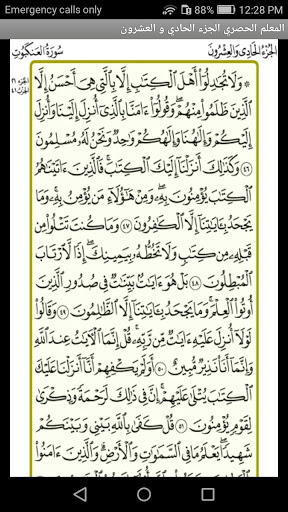 Emergency calls only 12:28 PM
المعلم الحصري الجزء الحادي و العشرون
الجُزْءُ الحَادِي وَالعِشْرُونَ سُورَةُ العَنكَبُوتِ
۞ وَلَا تُجَٰدِلُوٓاْ أَهۡلَ ٱلۡكِتَٰبِ إِلَّا بِٱلَّتِي هِيَ أَحۡسَنُ إِلَّا
ٱلَّذِينَ ظَلَمُواْ مِنۡهُمۡۖ وَقُولُوٓاْ ءَامَنَّا بِٱلَّذِيٓ أُنزِلَ إِلَيۡنَا وَأُنزِلَ
إِلَيۡكُمۡ وَإِلَٰهُنَا وَإِلَٰهُكُمۡ وَٰحِدٞ وَنَحۡنُ لَهُۥ مُسۡلِمُونَ
٤٦ وَكَذَٰلِكَ أَنزَلۡنَآ إِلَيۡكَ ٱلۡكِتَٰبَۚ فَٱلَّذِينَ ءَاتَيۡنَٰهُمُ
ٱلۡكِتَٰبَ يُؤۡمِنُونَ بِهِۦۖ وَمِنۡ هَٰٓؤُلَآءِ مَن يُؤۡمِنُ بِهِۦۚ وَمَا
يَجۡحَدُ بِـَٔايَٰتِنَآ إِلَّا ٱلۡكَٰفِرُونَ ٤٧ وَمَا كُنتَ تَتۡلُواْ مِن
قَبۡلِهِۦ مِن كِتَٰبٖ وَلَا تَخُطُّهُۥ بِيَمِينِكَۖ إِذٗا لَّٱرۡتَابَ
ٱلۡمُبۡطِلُونَ ٤٨ بَلۡ هُوَ ءَايَٰتُۢ بَيِّنَٰتٞ فِي صُدُورِ ٱلَّذِينَ
أُوتُواْ ٱلۡعِلۡمَۚ وَمَا يَجۡحَدُ بِـَٔايَٰتِنَآ إِلَّا ٱلظَّٰلِمُونَ ٤٩ وَقَالُواْ
لَوۡلَآ أُنزِلَ عَلَيۡهِ ءَايَٰتٞ مِّن رَّبِّهِۦۚ قُلۡ إِنَّمَا ٱلۡأٓيَٰتُ عِندَ ٱللَّهِ
وَإِنَّمَآ أَنَا۠ نَذِيرٞ مُّبِينٌ ٥٠ أَوَلَمۡ يَكۡفِهِمۡ أَنَّآ أَنزَلۡنَا عَلَيۡكَ
ٱلۡكِتَٰبَ يُتۡلَىٰ عَلَيۡهِمۡۚ إِنَّ فِي ذَٰلِكَ لَرَحۡمَةٗ وَذِكۡرَىٰ
لِقَوۡمٖ يُؤۡمِنُونَ ٥١ قُلۡ كَفَىٰ بِٱللَّهِ بَيۡنِي وَبَيۡنَكُمۡ
شَهِيدٗاۖ يَعۡلَمُ مَا فِي ٱلسَّمَٰوَٰتِ وَٱلۡأَرۡضِۗ وَٱلَّذِينَ ءَامَنُواْ